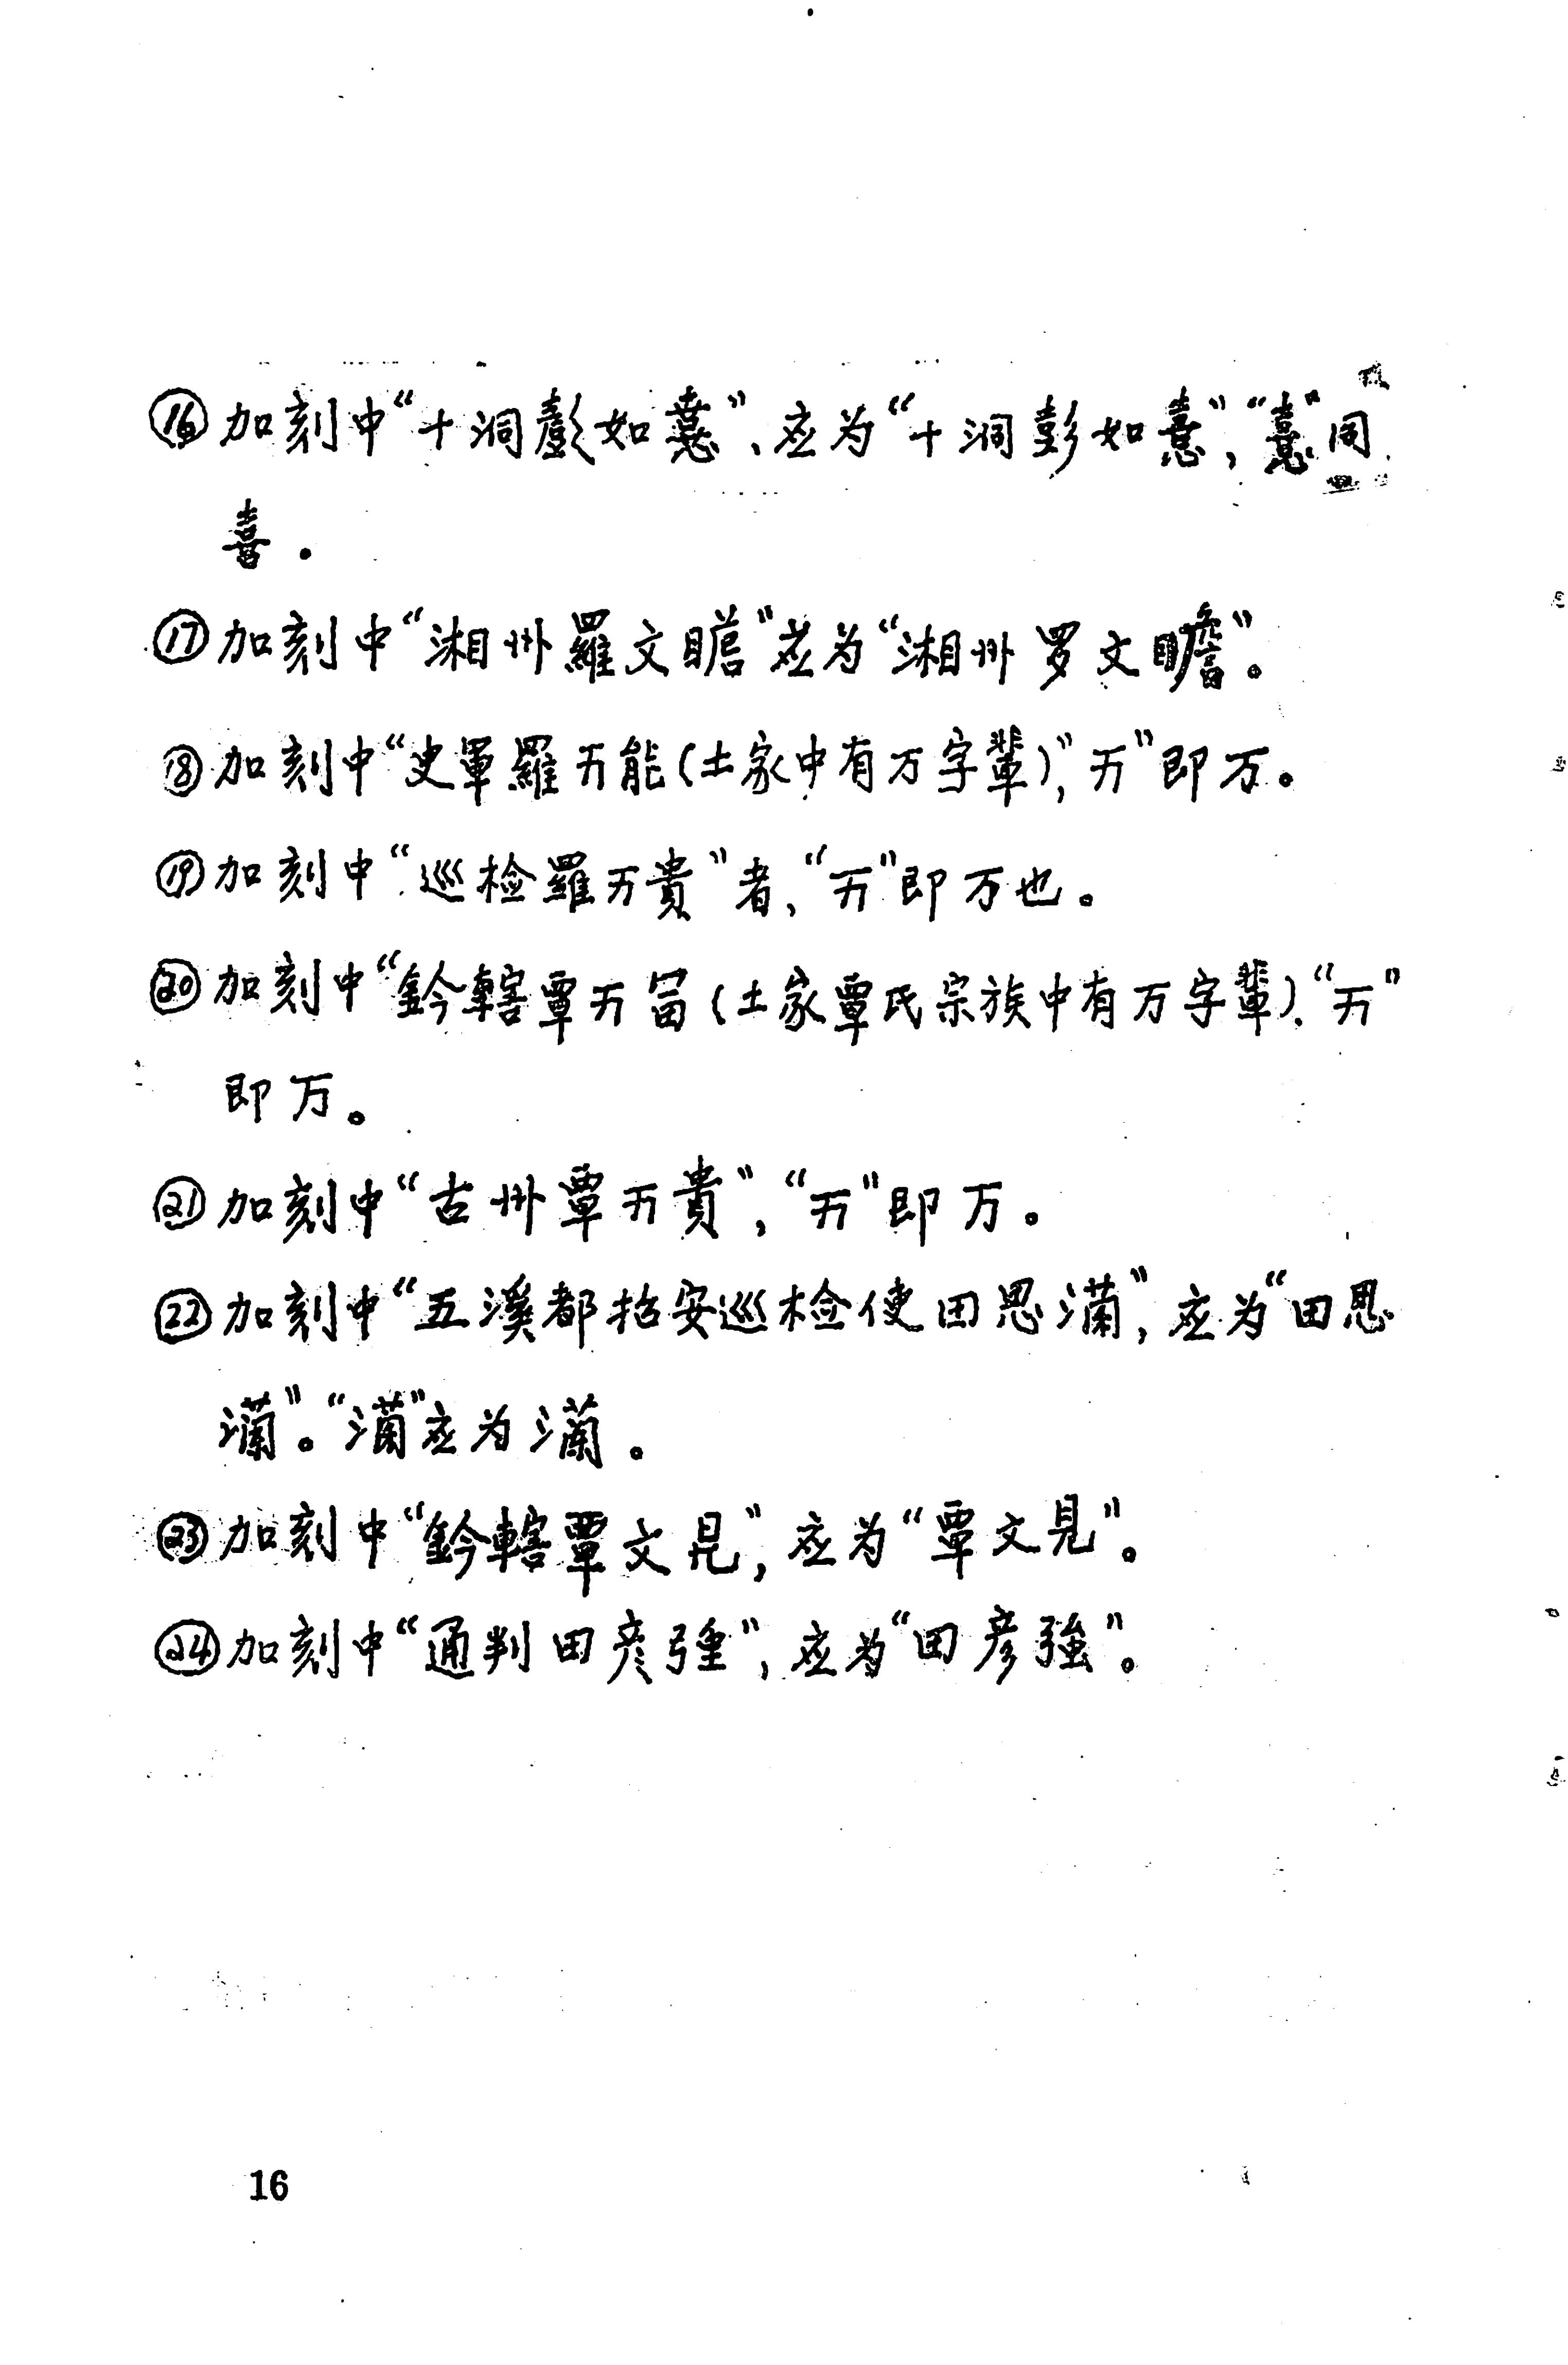 ⑯加刻中“十洞彭如憙”、应为“十洞彭如憙”，“憙”同
喜.
⑰加刻中“湘州羅文瞻”应为“湘州罗文瞻”。
⑱加刻中“史覃羅万能(土家中有万字輩)”，“万”即万。
⑲加刻中“巡检羅万貴”者、“万”即万也。
⑳加刻中“鈐轄覃万富(土家覃氏宗族中有万字輩)、“万”
即万。
㉑加刻中“古州覃万貴”，“万”即万。
㉒加刻中“五溪都招安巡检使田思满”，应为“田思
满”。“满”应为满。
㉓加刻中“鈐轄覃文見”，应为“覃文見”。
㉔加刻中“通判田彦强”，应为“田彦強”。
16